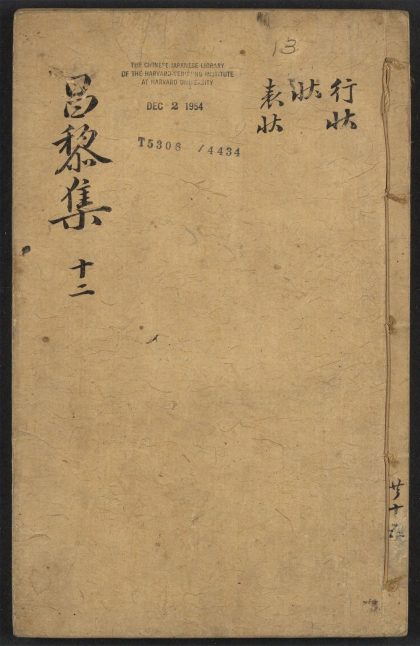 13
THE CHINESE-JAPANESE LIBRARY
OF THE HARVARD-YENCHING INSTITUTE
AT HARVARD UNIVERSITY
DEC -2 1954
T5308 /4434
行狀
狀
表狀
昌黎集
十二
共十